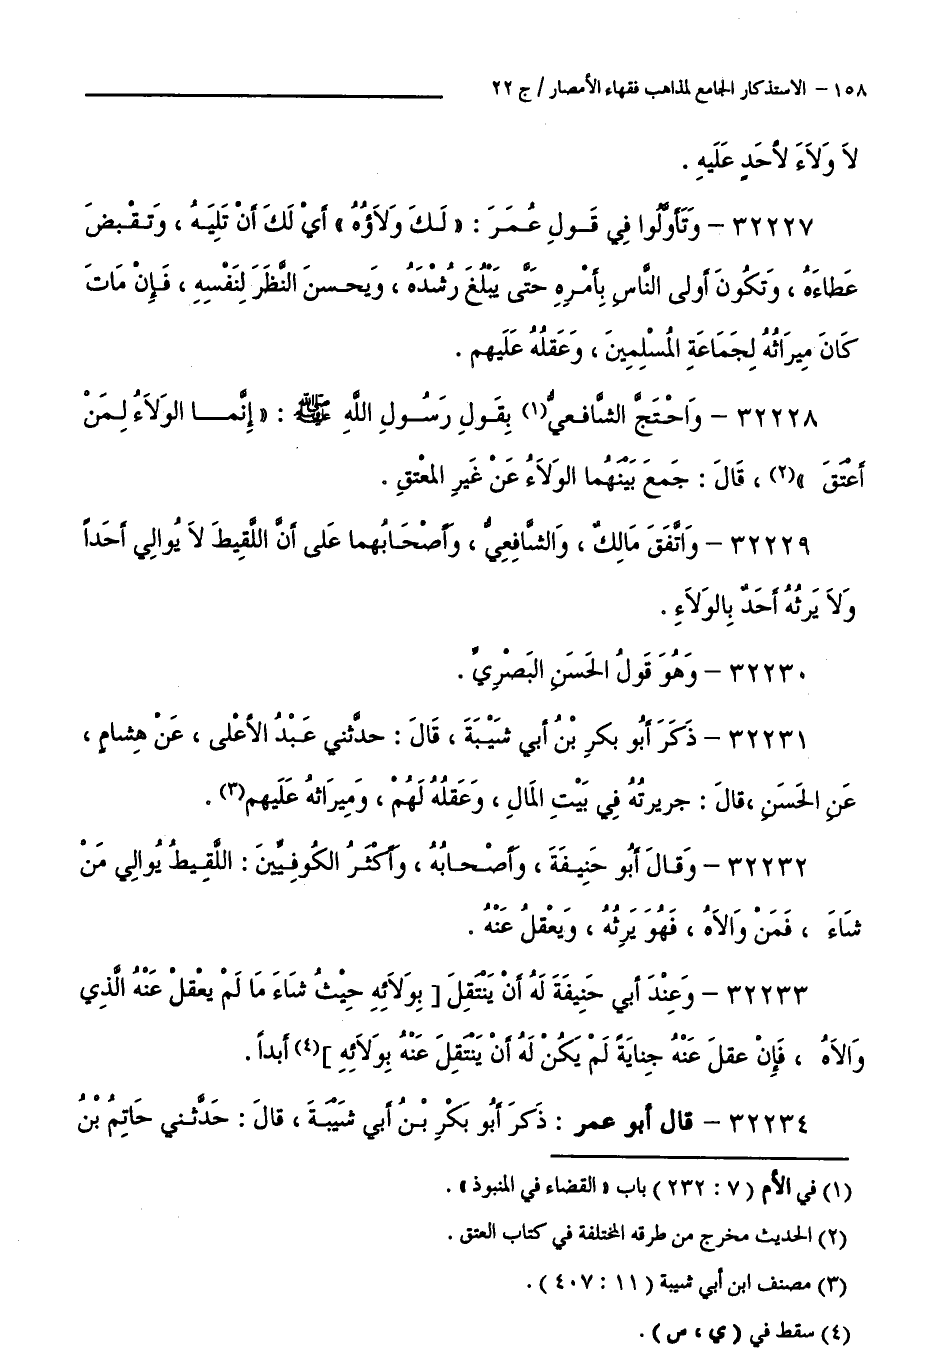 ١٥٨ – الاستذكار الجامع لمذاهب فقهاء الأمصار / ج ٢٢
لاَ وَلاَءَ لأحَدٍ عَلَيهِ .
٣٢٢٢٧ – وَتَأوَّلُوا فِي قَولِ عُمَرَ : « لَكَ وَلاَؤُهُ » أيْ لَكَ أنْ تَلِيَهُ ، وَتقْبضَ
عَطاءَهُ ، وَتَكُونَ أولى النَّاسِ بِأمْرِهِ حَتَّى يَبْلُغَ رُشْدَهُ ، وَيَحسنَ النَّظَرَ لِنَفْسِهِ ، فَإنْ مَاتَ
كَانَ مِيرَاثُهُ لِجَمَاعَةِ المُسْلِمِينَ ، وَعَقلُهُ عَلَيهم .
٣٢٢٢٨ – وَاحْتَجَّ الشَّافعيُّ(١) بِقَولِ رَسُولِ اللَّهِ ﷺ : « إنَّما الوَلاَءُ لِمَنْ
أعْتَقَ »(٢) ، قَالَ : جَمعَ بَيْنَهُما الوَلاَءُ عَنْ غَيرِ المعْتقِ .
٣٢٢٢٩ – وَاتَّفَقَ مَالِكٌ ، وَالشَّافِعِيُّ ، وَأصْحَابُهما عَلى أنَّ اللَّقيطَ لاَ يُوالِي أحَداً
وَلاَ يَرِثُهُ أحَدٌ بِالوَلاَءِ .
٣٢٢٣٠ – وَهُوَ قَولُ الحَسَنِ البَصْرِيِّ .
٣٢٢٣١ – ذَكَرَ أبُو بكرِ بْنُ أبي شَيْبَةَ ، قَالَ : حدثَّني عَبْدُ الأعْلى ، عَنْ هِشامٍ ،
عَنِ الحَسَنِ ،قالَ : جريرتُهُ فِي بَيْتِ المَالِ ، وَعَقلُهُ لَهُمْ ، وَمِيرَاثهُ عَلَيهم(٣) .
٣٢٢٣٢ – وَقَالَ أبُو حَنِيفَةَ ، وَأصْحابُهُ ، وَأكْثَرُ الكُوفِيِّينَ : اللَّقِيطُ يُوالِي مَنْ
شَاءَ ، فَمَنْ وَالاَهُ ، فَهُوَ يَرِثُهُ ، وَيَعْقلُ عَنْهُ .
٣٢٢٣٣ – وَعِنْدَ أبي حَنِيفَةَ لَهُ أنْ يَنْتَقِلَ [ بِوَلاَئِهِ حيْثُ شَاءَ مَا لَمْ يعْقلْ عَنْهُ الَّذِي
وَالاَهُ ، فَإنْ عقلَ عَنْهُ جِنايَةً لَمْ يَكُنْ لَهُ أنْ يَنْتَقِلَ عَنْهُ بِوَلاَئِهِ ](٤) أبداً .
٣٢٢٣٤ – قال أبو عمر : ذَكَرَ أبُو بَكْرِ بْنُ أبي شَيْبَةَ ، قالَ : حَدَّثَني حَاتِمُ بْنُ
(١) في الأم ( ٧ : ٢٣٢ ) باب « القضاء في المنبوذ » .
(٢) الحديث مخرج من طرقه المختلفة في كتاب العتق .
(٣) مصنف ابن أبي شيبة ( ١١ : ٤٠٧ ) .
(٤) سقط في ( ي ، ص ) .